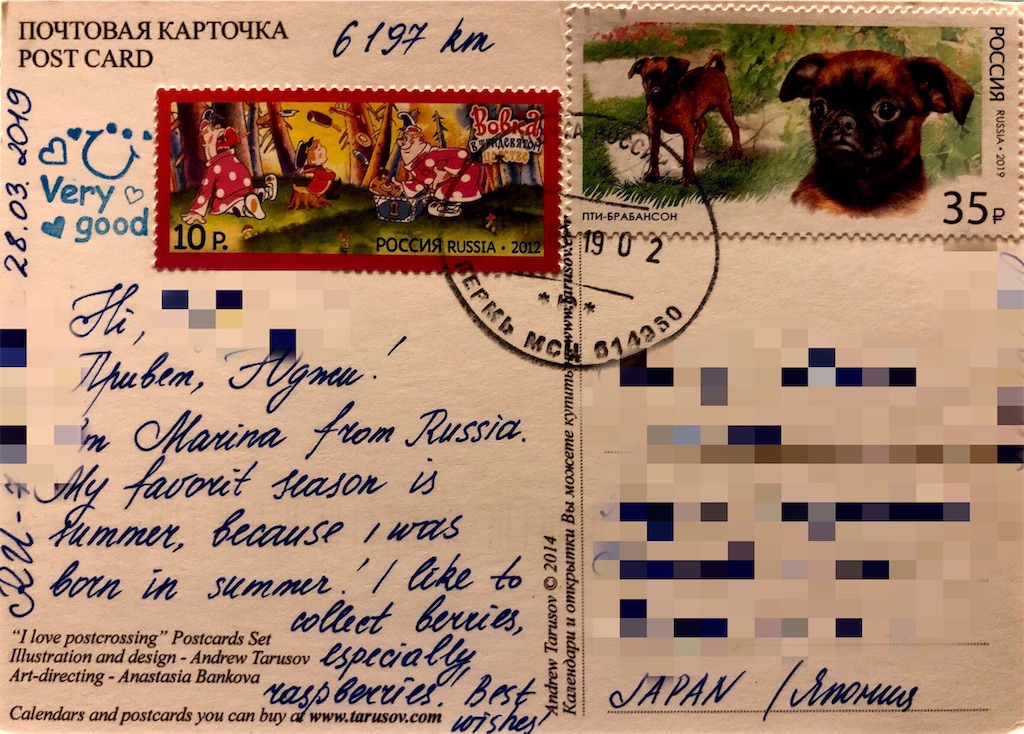 ПОЧТОВАЯ КАРТОЧКА
POST CARD
6197 km
28.03.2019
Very
good
Вовка
в тридевятом
царстве
10 Р.
РОССИЯ RUSSIA • 2012
РОССИЯ RUSSIA • 2019
ПТИ-БРАБАНСОН
35₽
19 0 2
ПЕРМЬ МСЦ 614960
Hi,
Привет, Юджи!
I'm Marina from Russia.
My favorit season is
summer, because I was
born in summer! I like to
collect berries,
especially
raspberries! Best
wishes!
RU-7
"I love postcrossing" Postcards Set
Illustration and design - Andrew Tarusov
Art-directing - Anastasia Bankova
Calendars and postcards you can buy at www.tarusov.com
Andrew Tarusov © 2014
Календари и открытки Вы можете купить www.tarusov.com
JAPAN / Япония